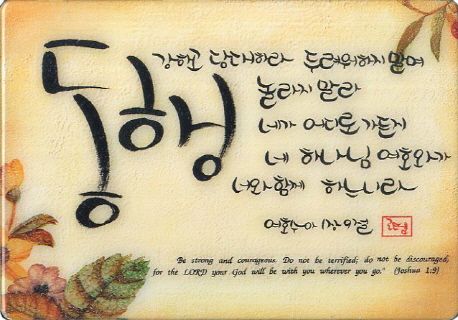 동행
강하고 담대하라 두려워하지 말며
놀라지 말라
네가 어디로 가든지
네 하나님 여호와가
너와 함께 하느니라
여호수아 1장 9절
Be strong and courageous. Do not be terrified; do not be discouraged,
for the LORD your God will be with you wherever you go." (Joshua 1:9)